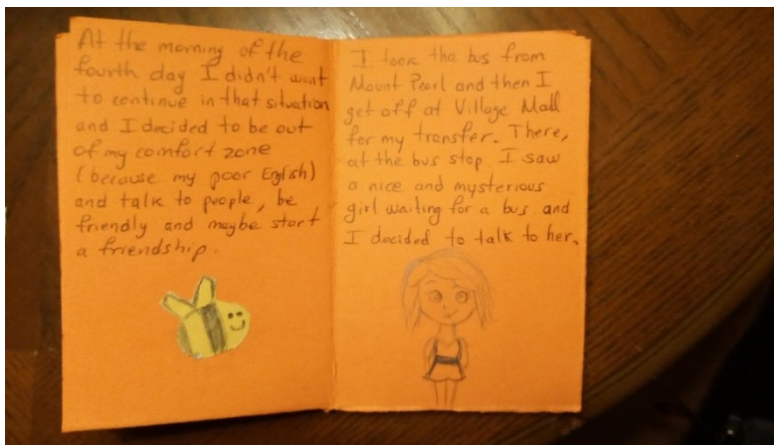 At the morning of the
fourth day I didn't want
to continue in that situation
and I decided to be out
of my comfort zone
(because my poor English)
and talk to people, be
friendly and maybe start
a friendship.
I took the bus from
Mount Pearl and then I
get off at Village Mall
for my transfer. There,
at the bus stop, I saw
a nice and mysterious
girl waiting for a bus and
I decided to talk to her.